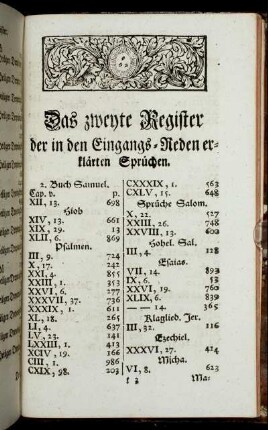 Das zweyte Register
der in den Eingangs-Reden er-
klärten Sprüchen.
2. Buch Samuel.
Cap. v. p.
XII, 13. 698
Hiob
XIV, 13. 661
XIX, 29. 13
XLII, 6. 869
Psalmen.
III, 9. 724
X, 17. 242
XXI, 4. 855
XXIII, 1. 353
XXVI, 6. 277
XXXVII, 37. 736
XXXIX, 1. 611
XL, 18. 265
LI, 4. 637
LV, 23. 141
LXXIII, 1. 413
XCIV, 19. 166
CIII, 1. 986
CXIX, 98. 203
CXXXIX, 1. 563
CXLV, 15. 648
Sprüche Salom.
X, 22. 527
XXIII, 26. 748
XXVIII, 13. 600
Hohel. Sal.
III, 4. 128
Esaias.
VII, 14. 893
IX, 6. 53
XXVI, 19. 760
XLIX, 6. 839
— — 14. 365
Klaglied. Jer.
III, 32. 116
Ezechiel.
XXXVI, 27. 424
Micha.
VI, 8. 623
Ma: